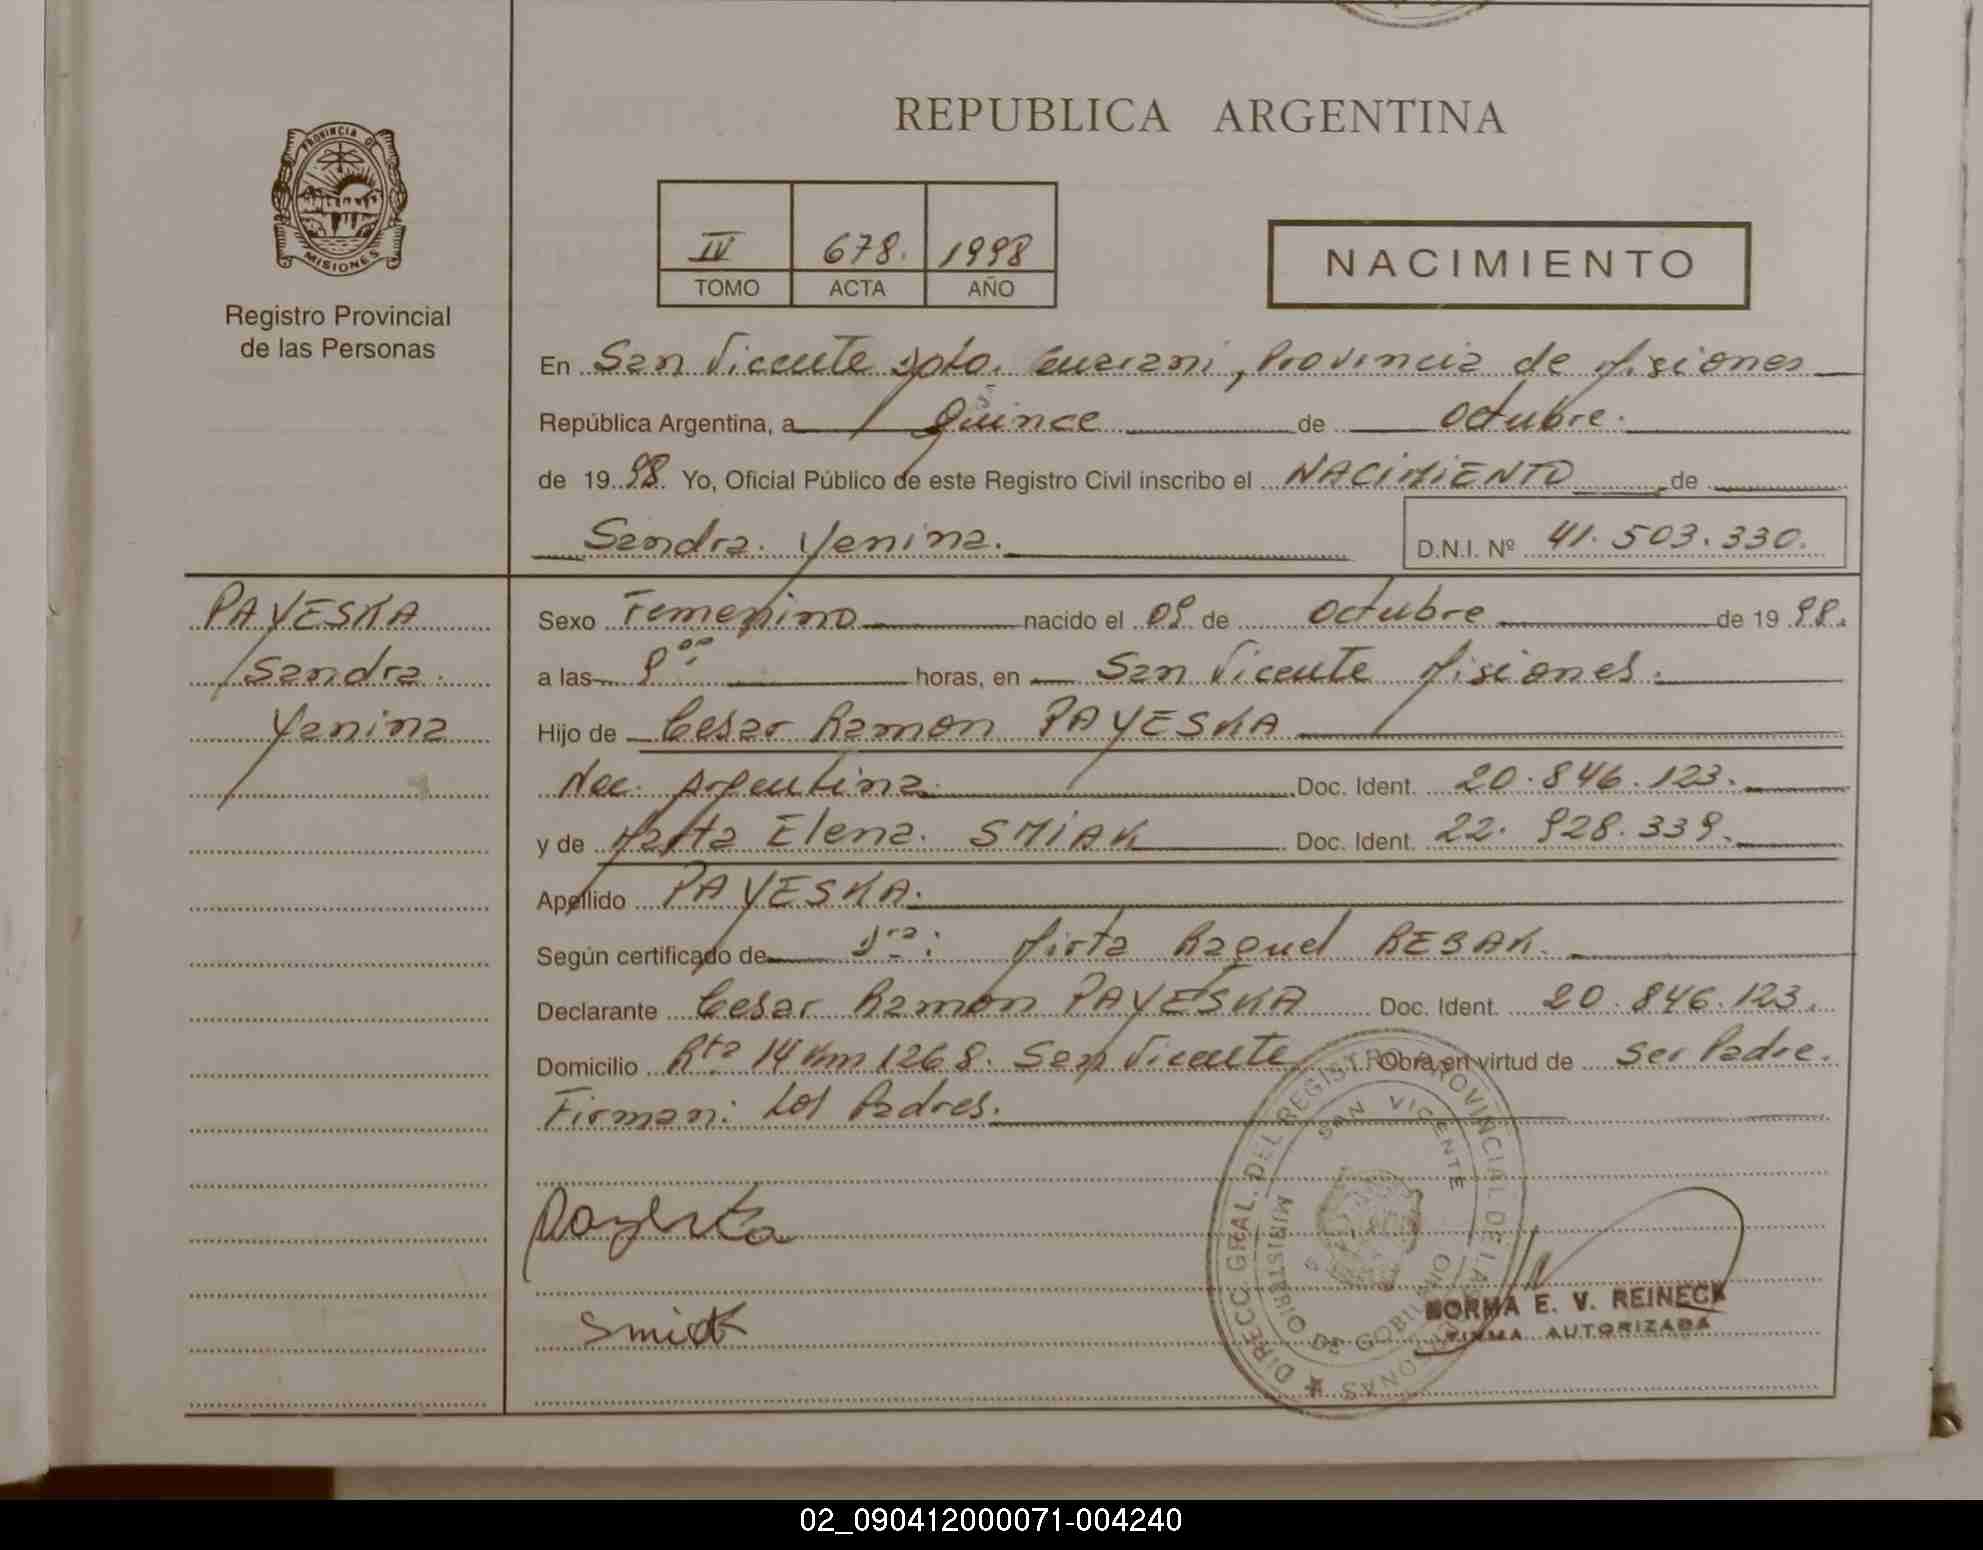 REPUBLICA ARGENTINA
PROVINCIA DE
MISIONES
Registro Provincial
de las Personas
IV 678. 1998
TOMO ACTA AÑO
NACIMIENTO
En San Vicente Dpto. Guarani, Provincia de Misiones
República Argentina, a Quince de Octubre.
de 1998. Yo, Oficial Público de este Registro Civil inscribo el NACIMIENTO de
Sandra Yenina.
D.N.I. Nº 41.503.330.
PAYESKA
Sandra.
Yanina
Sexo Femenino nacido el 09 de Octubre de 1998.
a las horas, en San Vicente Misiones.
Hijo de Cesar Ramon PAYESKA
Nac. Argentina Doc. Ident. 20.846.123.
y de Marta Elena. SMIAK Doc. Ident. 22.928.339.
Apellido PAYESKA.
Según certificado de Dra: Mirta Raquel
Declarante Cesar Ramon PAYESKA Doc. Ident. 20.846.123.
Domicilio Rta 14 Km 1268. San Vicente Obra en virtud de ser Padre.
Firman: Los Padres.
Payeska
Smiak
DIRECC. GRAL. DEL REGISTRO PROVINCIAL DE LAS PERSONAS
SAN VICENTE
MINISTERIO DE GOBIERNO
NORMA E. V. REINECK
FIRMA AUTORIZADA
02_090412000071-004240